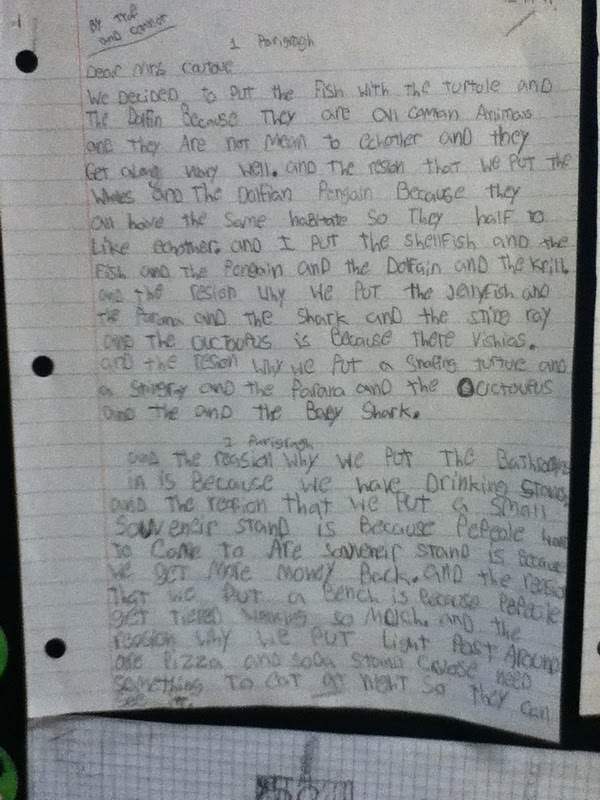 By Trae
and connor
1 Parigragh
Dear Mrs
We Decided to Put the Fish with the turtole and
The Dolfin Because They are all caman Animals
and They Are not Mean to echother and they
Get along vary well. and The resion that we Put the
Whales and The Dalfian Pengain Because they
all have the same habitate so They half to
Like echother. and I Put the shellfish and the
Fish and The Pengain and the Dolfain and the krill.
and the resion why We Put the Jellyfish and
the Parana and the Shark and the sting ray
and The Ouctoupus is Because There Vishias.
and the resion why we Put a Snaping turtule and
a Stingry and the Parana and the Ouctoupus
and the and the Baby Shark.
2 Parigragh
and The reasion why we Put The Bathrooms
in is Because we have Drinking Stands
and The reasion that we Put a Small
Souveneir stand is Because Pepeole
to Come to Are Souveneir stand is Because
we get More money Back. and the reasion
That we Put a Bench is Because Pepeole
get tiered so Moich. and the
reasion why we Put Light Post Around
are Pizza and Soda Stand need
something To eat at Night so They can
see it.